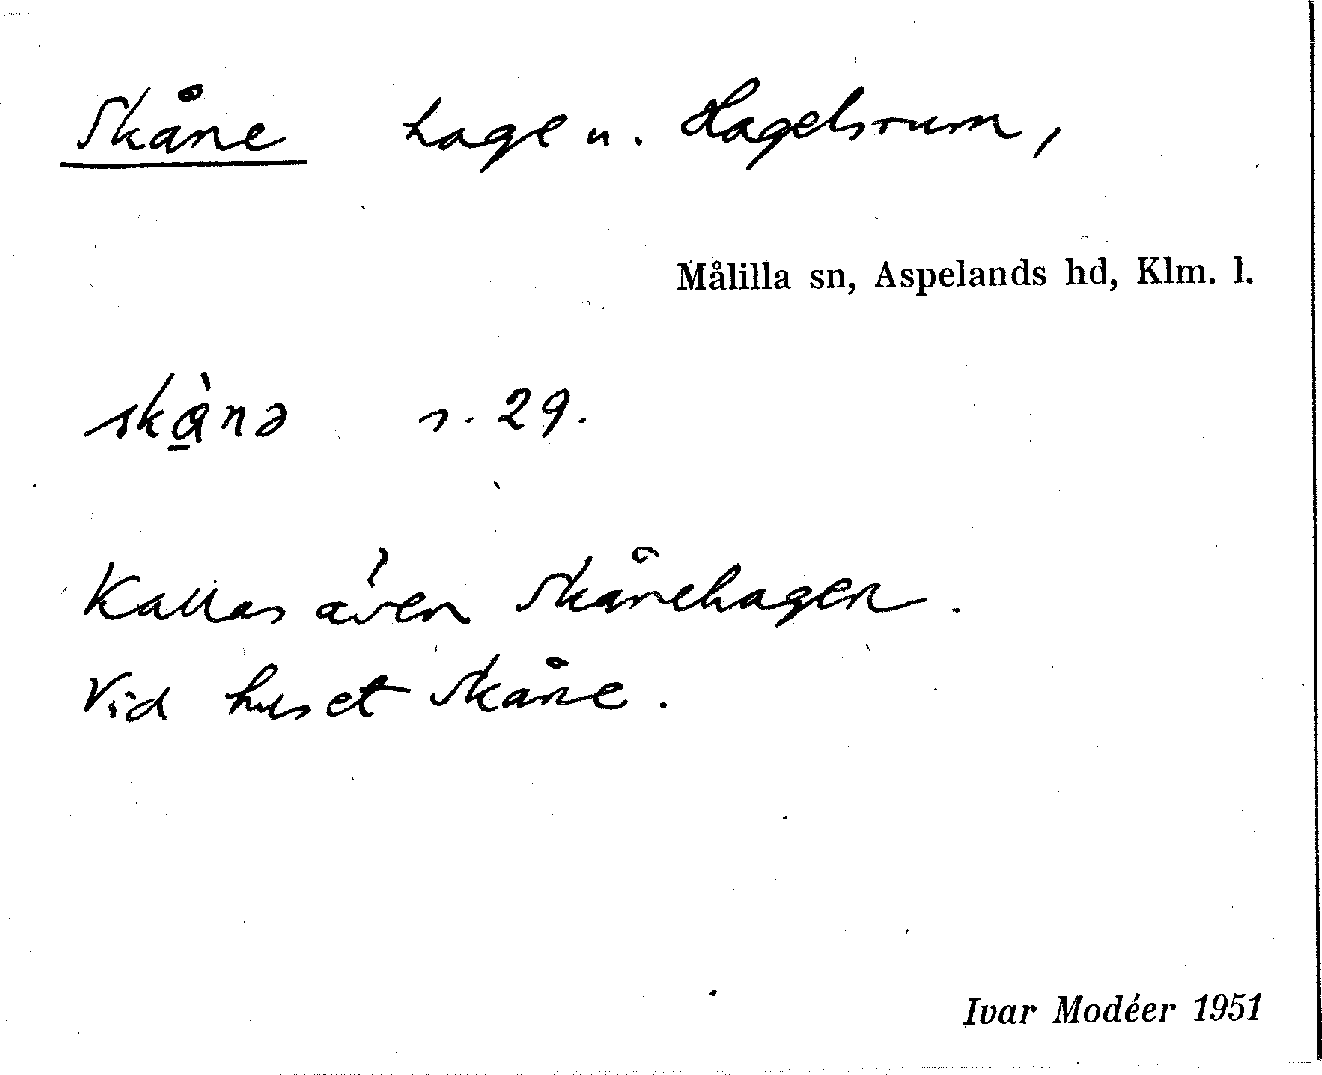 Skåne hage u. Hagelsrum,
Målilla sn, Aspelands hd, Klm. l.
skànə s. 29.
Kallas även Skånehagen.
Vid huset Skåne.
Ivar Modéer 1951